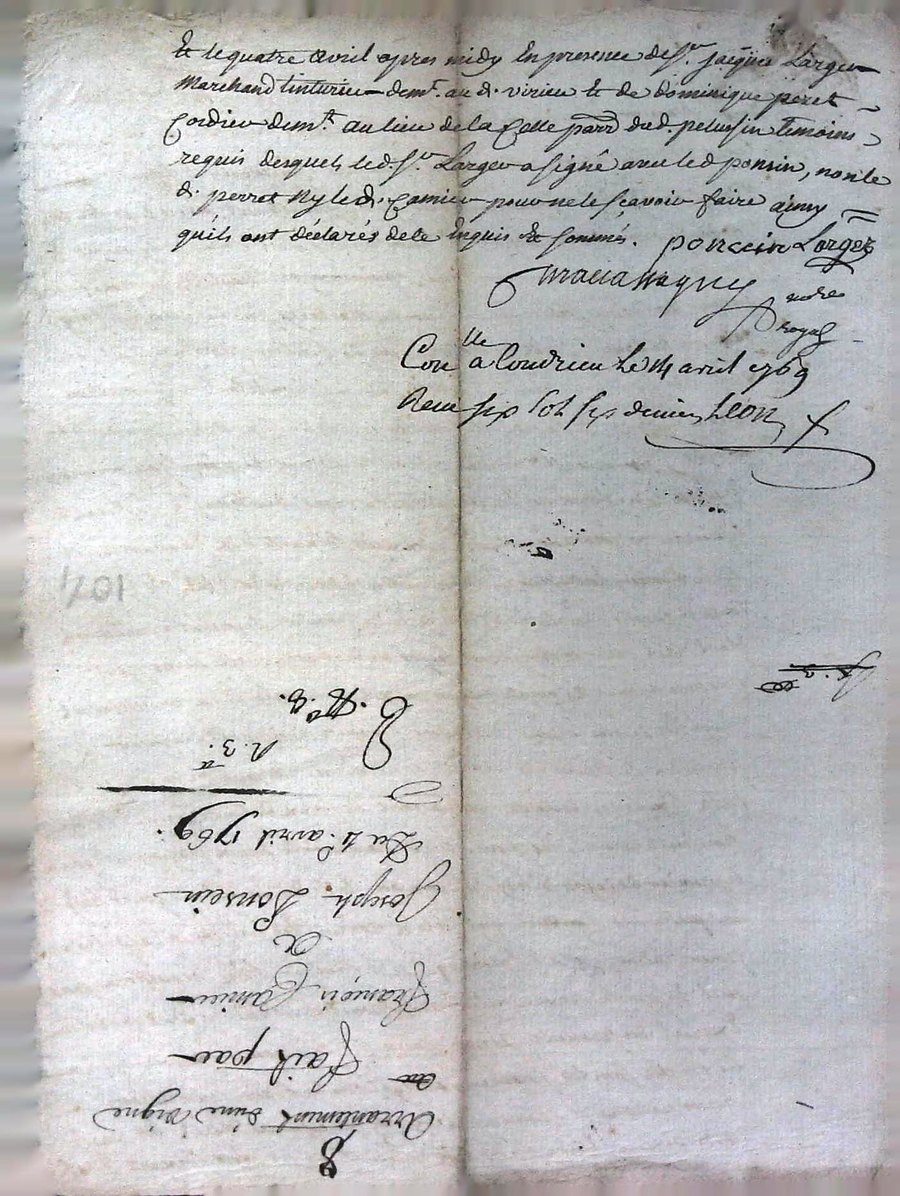 Et le quatre avril apres midy En presence de Sr. Jacque Larger
Marchand tinturier demt. au d. virieu Et de dominique peret
Cordier demt. au lieu de la Cotte parr. dud. pelussin temoins
requis desquels led. Sr. Larger a signé avec led ponsin, non le
d. perret Ny le d. Camier pour ne le sçavoir faire ainsy
quils ont déclarés de ce Enquis Et sommés. poncein Larger
notre
royal
Conlle a Condrieu le 14 avril 1769
Receu six sols six deniers Leon
1071
8
arrantement d'une vigne
fait par
françois Camier
a
Joseph Ponsein
Du 4e. avril 1769.
n. 3.